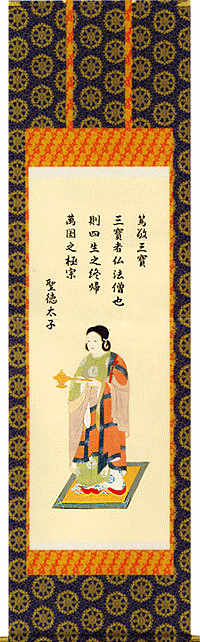 篤敬三寳
三寳者仏法僧也
則四生之終帰
萬国之極宗
聖徳太子